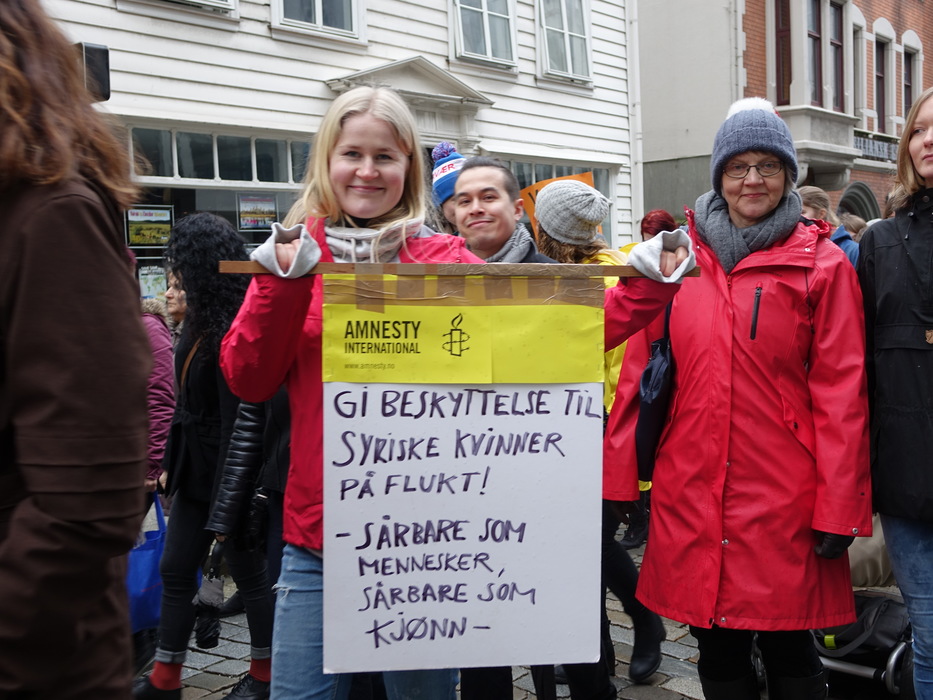 AMNESTY
INTERNATIONAL
www.amnesty.no
GI BESKYTTELSE TIL
SYRISKE KVINNER
PÅ FLUKT!
- SÅRBARE SOM
MENNESKER,
SÅRBARE SOM
KJØNN -